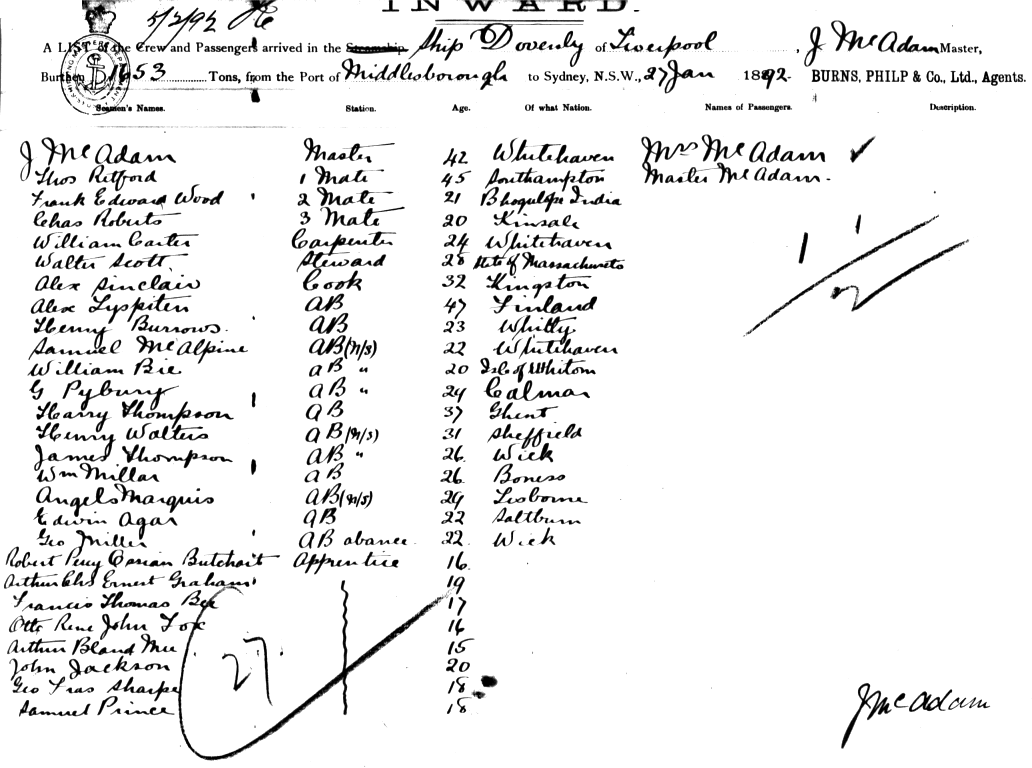 5/2/92
INWARD.
A LIST of the Crew and Passengers arrived in the Steamship Ship Dovenly of Liverpool, J McAdam Master,
Burthen 1653 Tons, from the Port of Middlesborough to Sydney, N.S.W., 27 Jan 1892 BURNS, PHILP & Co., Ltd., Agents.
Seamen's Names. Station. Age. Of what Nation. Names of Passengers. Description.
J McAdam Master 42 Whitehaven Mrs McAdam ✓
Thos Retford 1 Mate 45 Southampton Master McAdam.
Frank Edward Wood 2 Mate 21 India
Chas Roberts 3 Mate 20 Kinsale
William Carter Carpenter 24 Whitehaven
Walter Scott Steward 28 State of Massachusets
Alex Sinclair Cook 32 Kingston
Alex Lyspiten AB 47 Finland
Henry Burrows. AB 23 Whitby
Samuel McAlpine AB (N/S) 22 Whitehaven
William Bie AB " 20 Isle of
G Pyburg AB " 29 Calmar
Harry Thompson AB 37 Ghent
Henry Walters AB (N/S) 31 Sheffield
James Thompson AB " 26 Wick
Wm Millar AB 26 Boness
Angels Marquis AB (N/S) 29 Lisborne
Edwin Agar AB 22 Saltburn
Geo Miller AB 22 Wick
Robert Percy Butchart Apprentice 16
Arthur Chs Ernest Graham 19
Francis Thomas Bee 17
Otto Rene John Fox 16
Arthur Bland 15
John Jackson 20
Geo Fras Sharpe 18
Samuel Prince 18
1 1
2
27
J McAdam